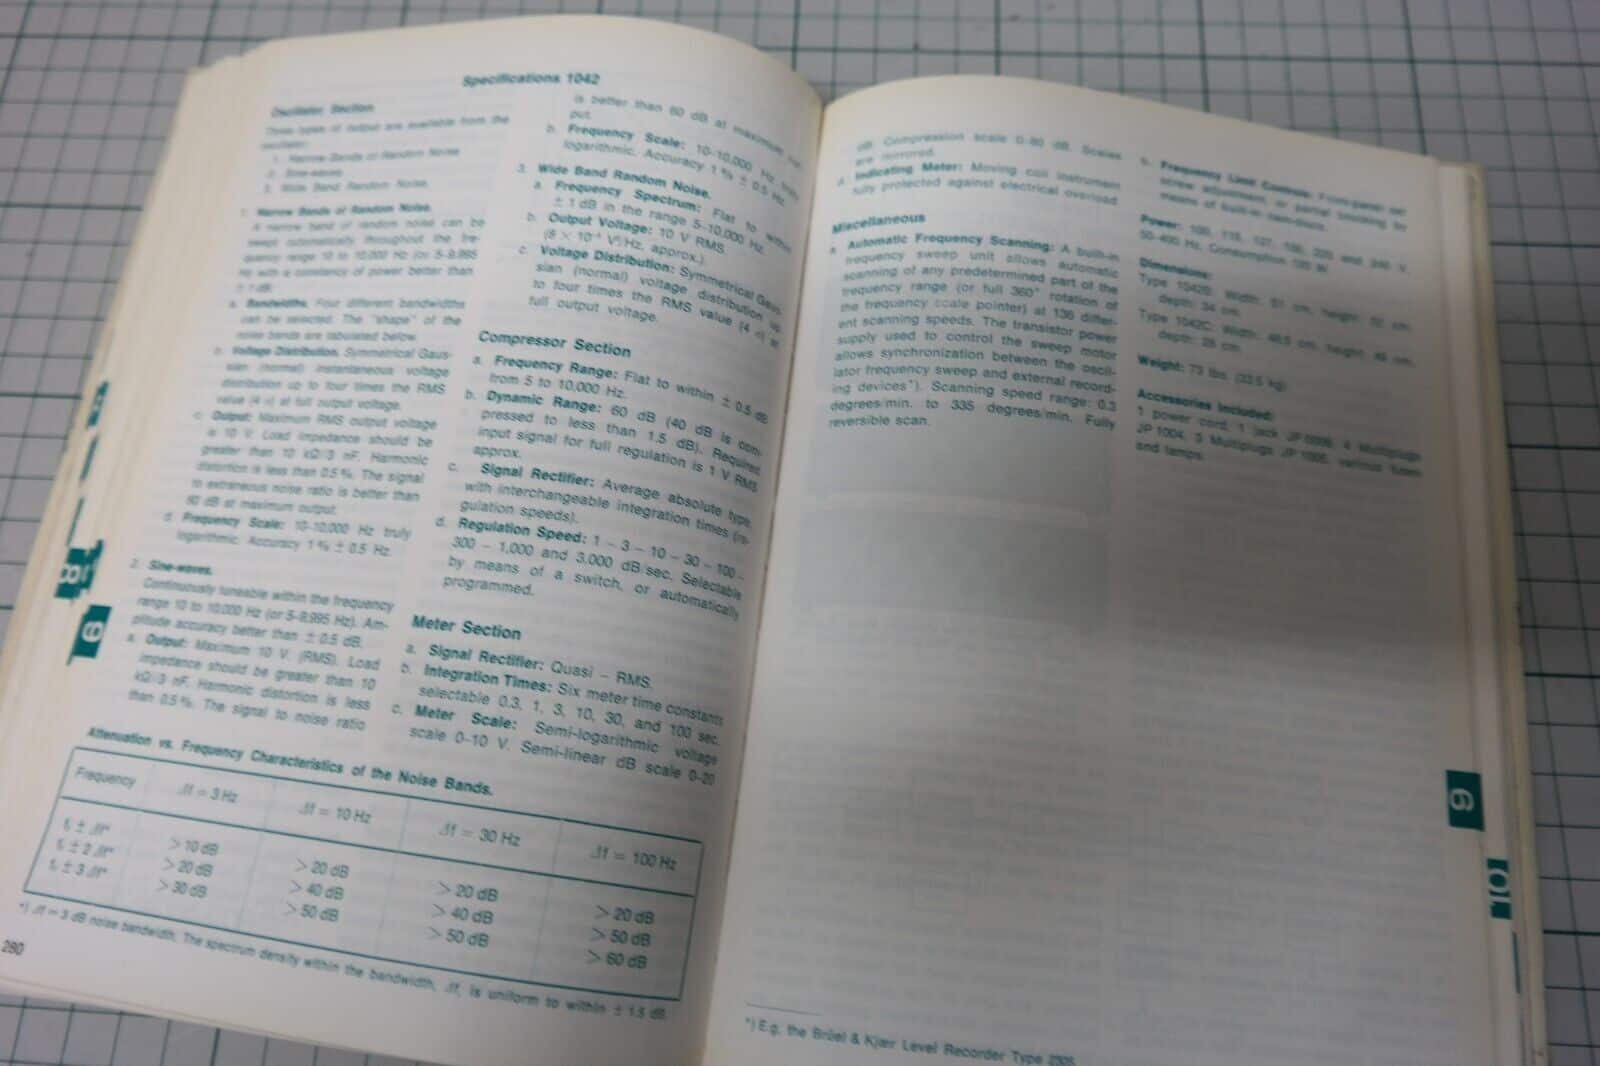 Specifications 1042
Oscillator Section
Three types of output are available from the
oscillator:
1. Narrow Bands of Random Noise
2. Sine-waves
3. Wide Band Random Noise.
1. Narrow Bands of Random Noise.
A narrow band of random noise can be
swept automatically throughout the fre-
quency range 10 to 10,000 Hz (or 5-9,995
Hz with a constancy of power better than
± 1 dB.
a. Bandwidths. Four different bandwidths
can be selected. The "shape" of the
noise bands are tabulated below.
b. Voltage Distribution. Symmetrical Gaus-
sian (normal) instantaneous voltage
distribution up to four times the RMS
value (4 σ) at full output voltage.
c. Output: Maximum RMS output voltage
is 10 V. Load impedance should be
greater than 10 kΩ/3 nF. Harmonic
distortion is less than 0.5 %. The signal
to extraneous noise ratio is better than
60 dB at maximum output.
d. Frequency Scale: 10-10,000 Hz truly
logarithmic. Accuracy 1 % ± 0.5 Hz.
2. Sine-waves.
Continuously tuneable within the frequency
range 10 to 10,000 Hz (or 5-9,995 Hz). Am-
plitude accuracy better than ± 0.5 dB.
a. Output: Maximum 10 V. (RMS). Load
impedance should be greater than 10
kΩ/3 nF. Harmonic distortion is less
than 0.5 %. The signal to noise ratio
is better than 60 dB at maximum out-
put.
b. Frequency Scale: 10-10,000 Hz
logarithmic. Accuracy 1 % ± 0.5 Hz.
3. Wide Band Random Noise.
a. Frequency Spectrum: Flat to within
± 1 dB in the range 5-10,000 Hz.
b. Output Voltage: 10 V RMS
V²/Hz, approx.).
c. Voltage Distribution: Symmetrical Gaus-
sian (normal) voltage distribution up
to four times the RMS value (4 σ) at
full output voltage.
Compressor Section
a. Frequency Range: Flat to within ± 0.5 dB
from 5 to 10,000 Hz.
b. Dynamic Range: 60 dB (40 dB is com-
pressed to less than 1.5 dB). Required
input signal for full regulation is 1 V RMS
approx.
c. Signal Rectifier: Average absolute type,
with interchangeable integration times (re-
gulation speeds).
d. Regulation Speed: 1 – 3 – 10 – 30 – 100 –
300 – 1,000 and 3,000 dB/sec. Selectable
by means of a switch, or automatically
programmed.
Meter Section
a. Signal Rectifier: Quasi – RMS.
b. Integration Times: Six meter time constants
selectable 0.3, 1, 3, 10, 30, and 100 sec.
c. Meter Scale: Semi-logarithmic voltage
scale 0-10 V. Semi-linear dB scale 0-20
Attenuation vs. Frequency Characteristics of the Noise Bands.
Frequency Δf = 3 Hz Δf = 10 Hz Δf = 30 Hz Δf = 100 Hz
f₀ ± Δf* > 10 dB > 20 dB > 20 dB > 20 dB
f₀ ± 2 Δf* > 20 dB > 40 dB > 40 dB > 50 dB
f₀ ± 3 Δf* > 30 dB > 50 dB > 50 dB > 60 dB
*) Δf = 3 dB noise bandwidth. The spectrum density within the bandwidth, Δf, is uniform to within ± 1.5 dB.
280
8
9
dB Compression scale 0-80 dB. Scales
are mirrored.
d. Indicating Meter: Moving coil instrument
fully protected against electrical overload.
Miscellaneous
a. Automatic Frequency Scanning: A built-in
frequency sweep unit allows automatic
scanning of any predetermined part of the
frequency range (or full 360° rotation of
the frequency scale pointer) at 136 differ-
ent scanning speeds. The transistor power
supply used to control the sweep motor
allows synchronization between the oscil-
lator frequency sweep and external record-
ing devices*). Scanning speed range: 0.3
degrees/min. to 335 degrees/min. Fully
reversible scan.
b. Frequency Limit Controls: Front-panel set
screw adjustment, or partial blocking by
means of built-in
Power: 100, 115, 127, 150, 220 and 240 V,
50-400 Hz. Consumption W.
Dimensions:
Type 1042B: Width: 51 cm, height: 52 cm
depth: 34 cm.
Type 1042C: Width: 48.5 cm, height: 49 cm,
depth: 28 cm.
Weight: 73 lbs. (33.5 kg)
Accessories Included:
1 power cord, 1 jack 4 Multiplugs
JP 1004, 3 Multiplugs JP 1005, various fuses
and lamps.
*) E.g. the Brüel & Kjær Level Recorder Type 2305.
9
10